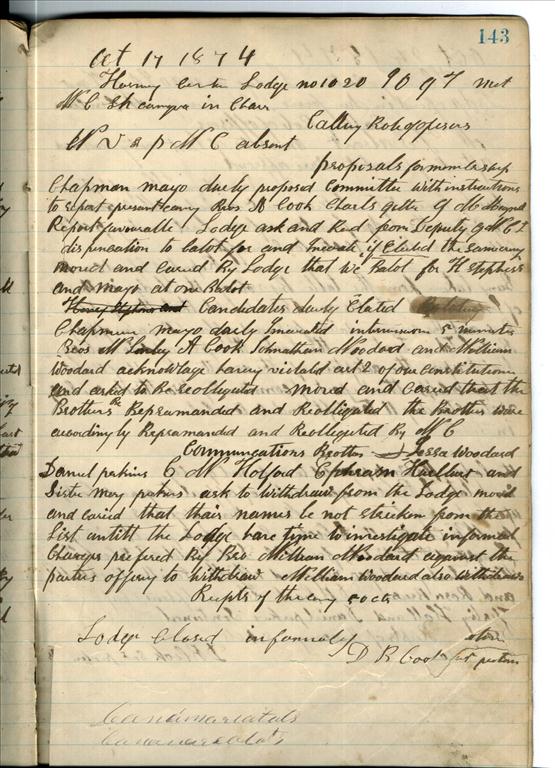 143
Oct 17 1874
Harvey Lodge no 1020 I O G T met
W C in Chair
Calling Role of oficers
W V & P W C absent
proposals for membership
Chapman mayo duely proposed Committee with instructions
to report presant Bros A Cook Charls G
Report favourable Lodge ask and Red from Deputy G W C T
dispensation to balot for and Iniciate if Elated the same
moved and caried By Lodge that we balot for H Stephens
and mayo at one Balot
Candidates duely Elated
Chapman mayo duely Iniciated intermission 5 minutes
Bros A Cook Johnathan Woodard and William
Woodard acknowlage haveing violatd art 2 of our constitution
and asked to Be reobligated moved and caried that the
Brothers Be Repramanded and Reobligated the Brothers were
accordingly Repramanded and Reobligated By W C
Communcations Brothers Woodard
Daniel perkins C M Holford Ephraim and
Sister May perkins ask to Withdraw from the Lodge movd
and caried that thair names be not stricken from the
List untill the Lodge have tyme to investigate informal
Charges prefered By Bro William Woodard against the
parties offering to Withdraw William Woodard also Withdraws
Receipts of the eveng 50 cts
Lodge Closed informaly
D R Cook